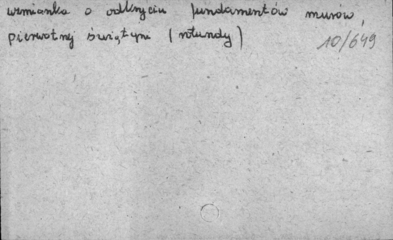 wzmianka o odkryciu fundamentów murów,
pierwotnej świątyni (rotundy)
10/649